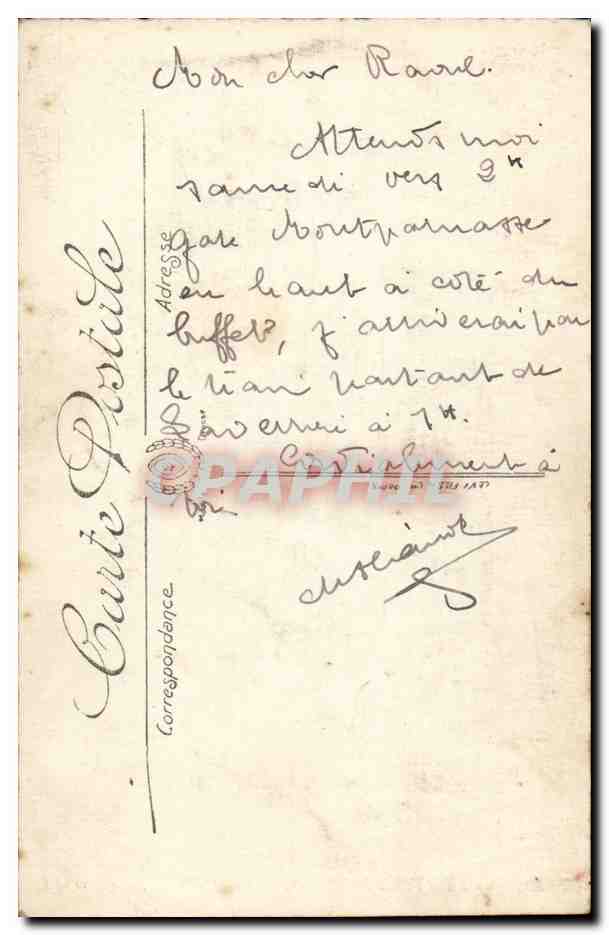 Mon cher Raoul.
Attends moi
samedi vers 2h
gare Montparnasse
en haut à côté du
buffet, j'arriverai par
le train partant de
à 1h.
Cordialement à
toi
Carte Postale
Adresse
Correspondance
©PAPHIL